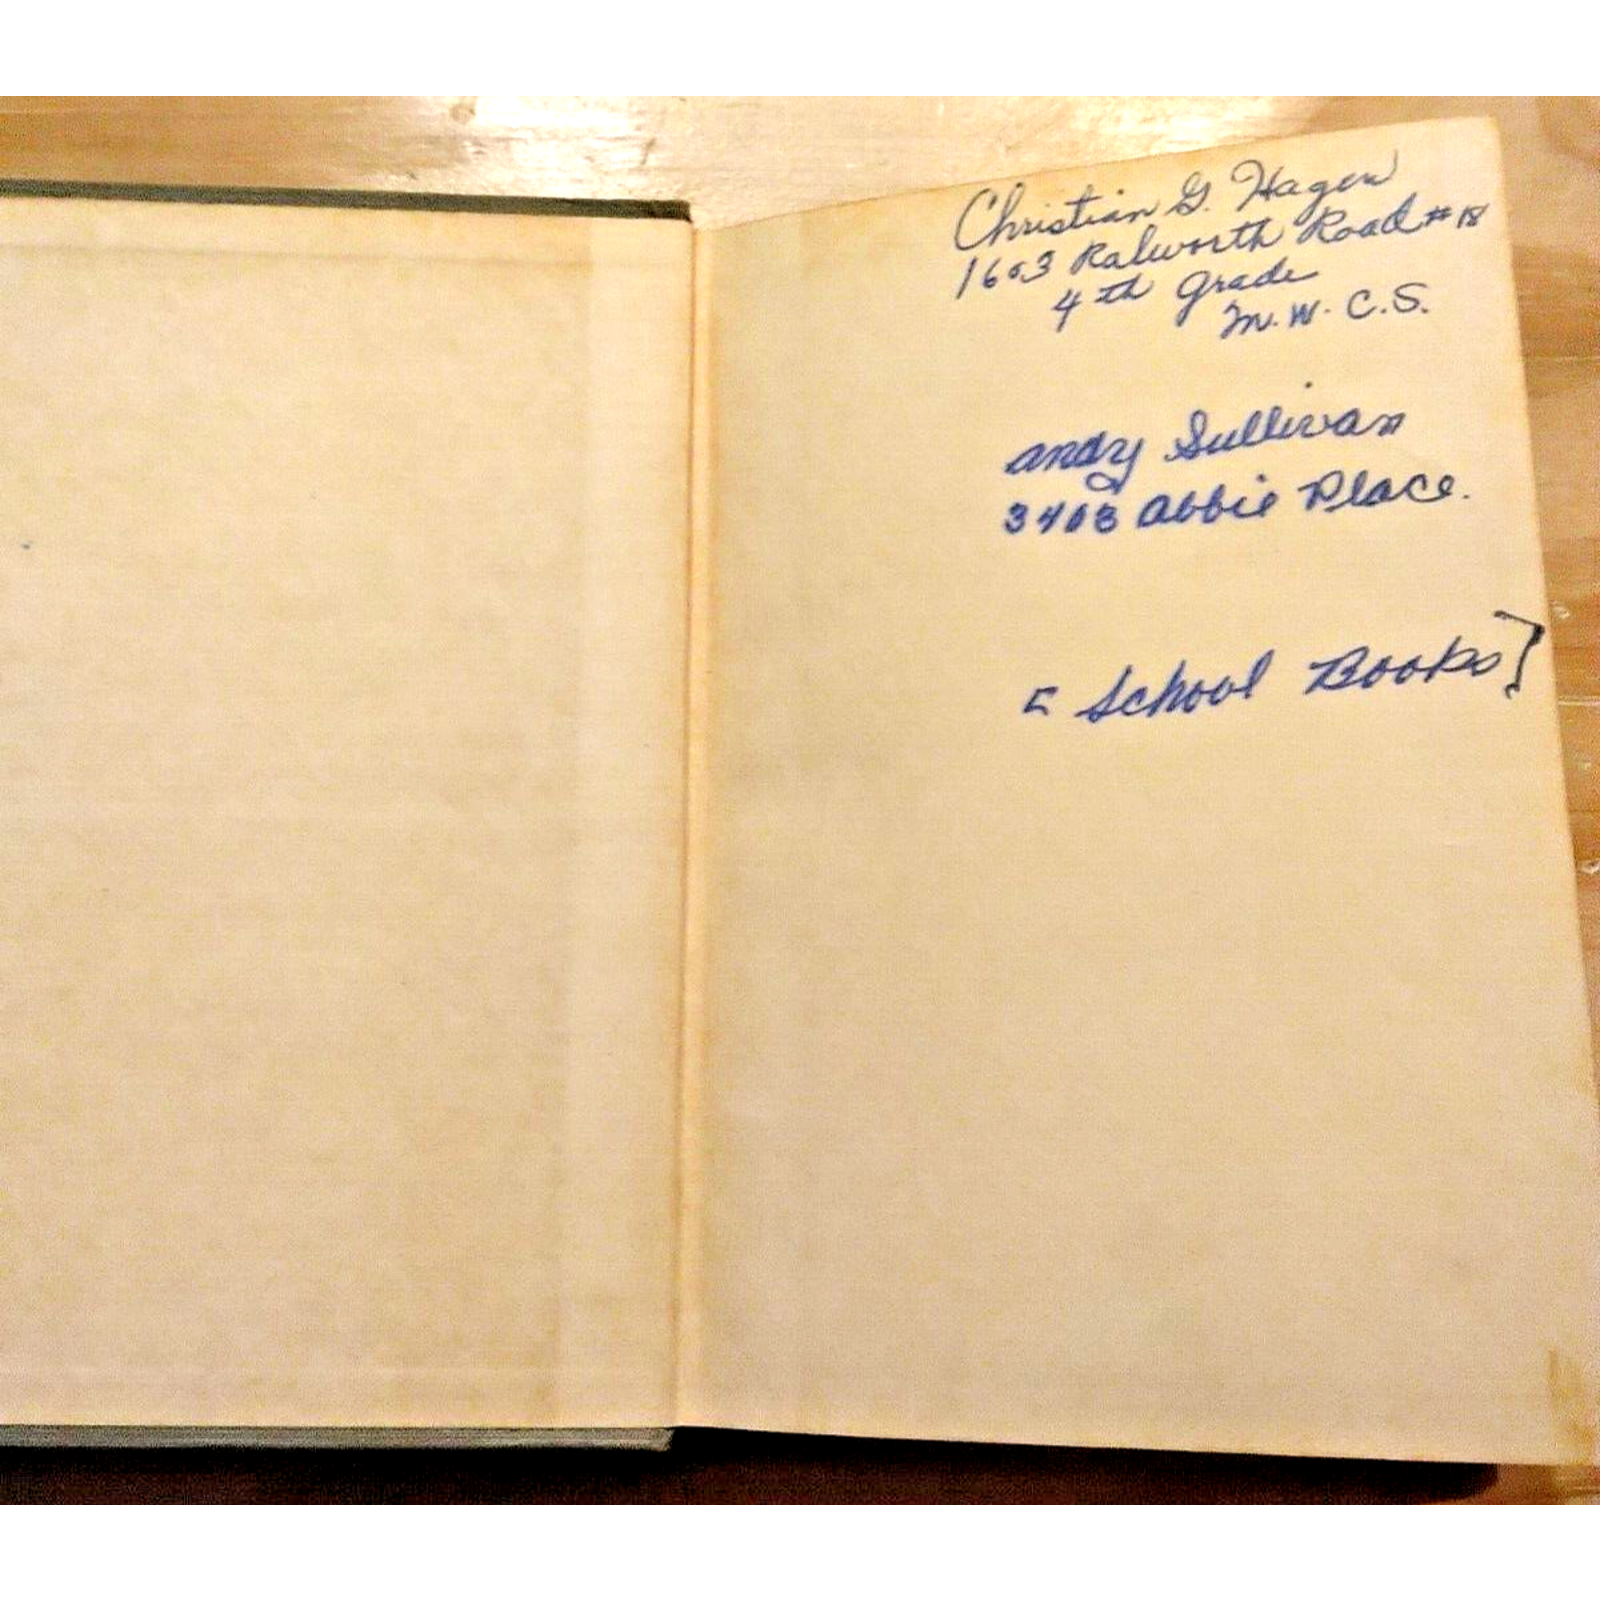 Christian G. Hagen
1603 Ralworth Road #18
4th Grade
M.W.C.S.
Andy Sullivan
3403 Abbie Place.
[School Books]